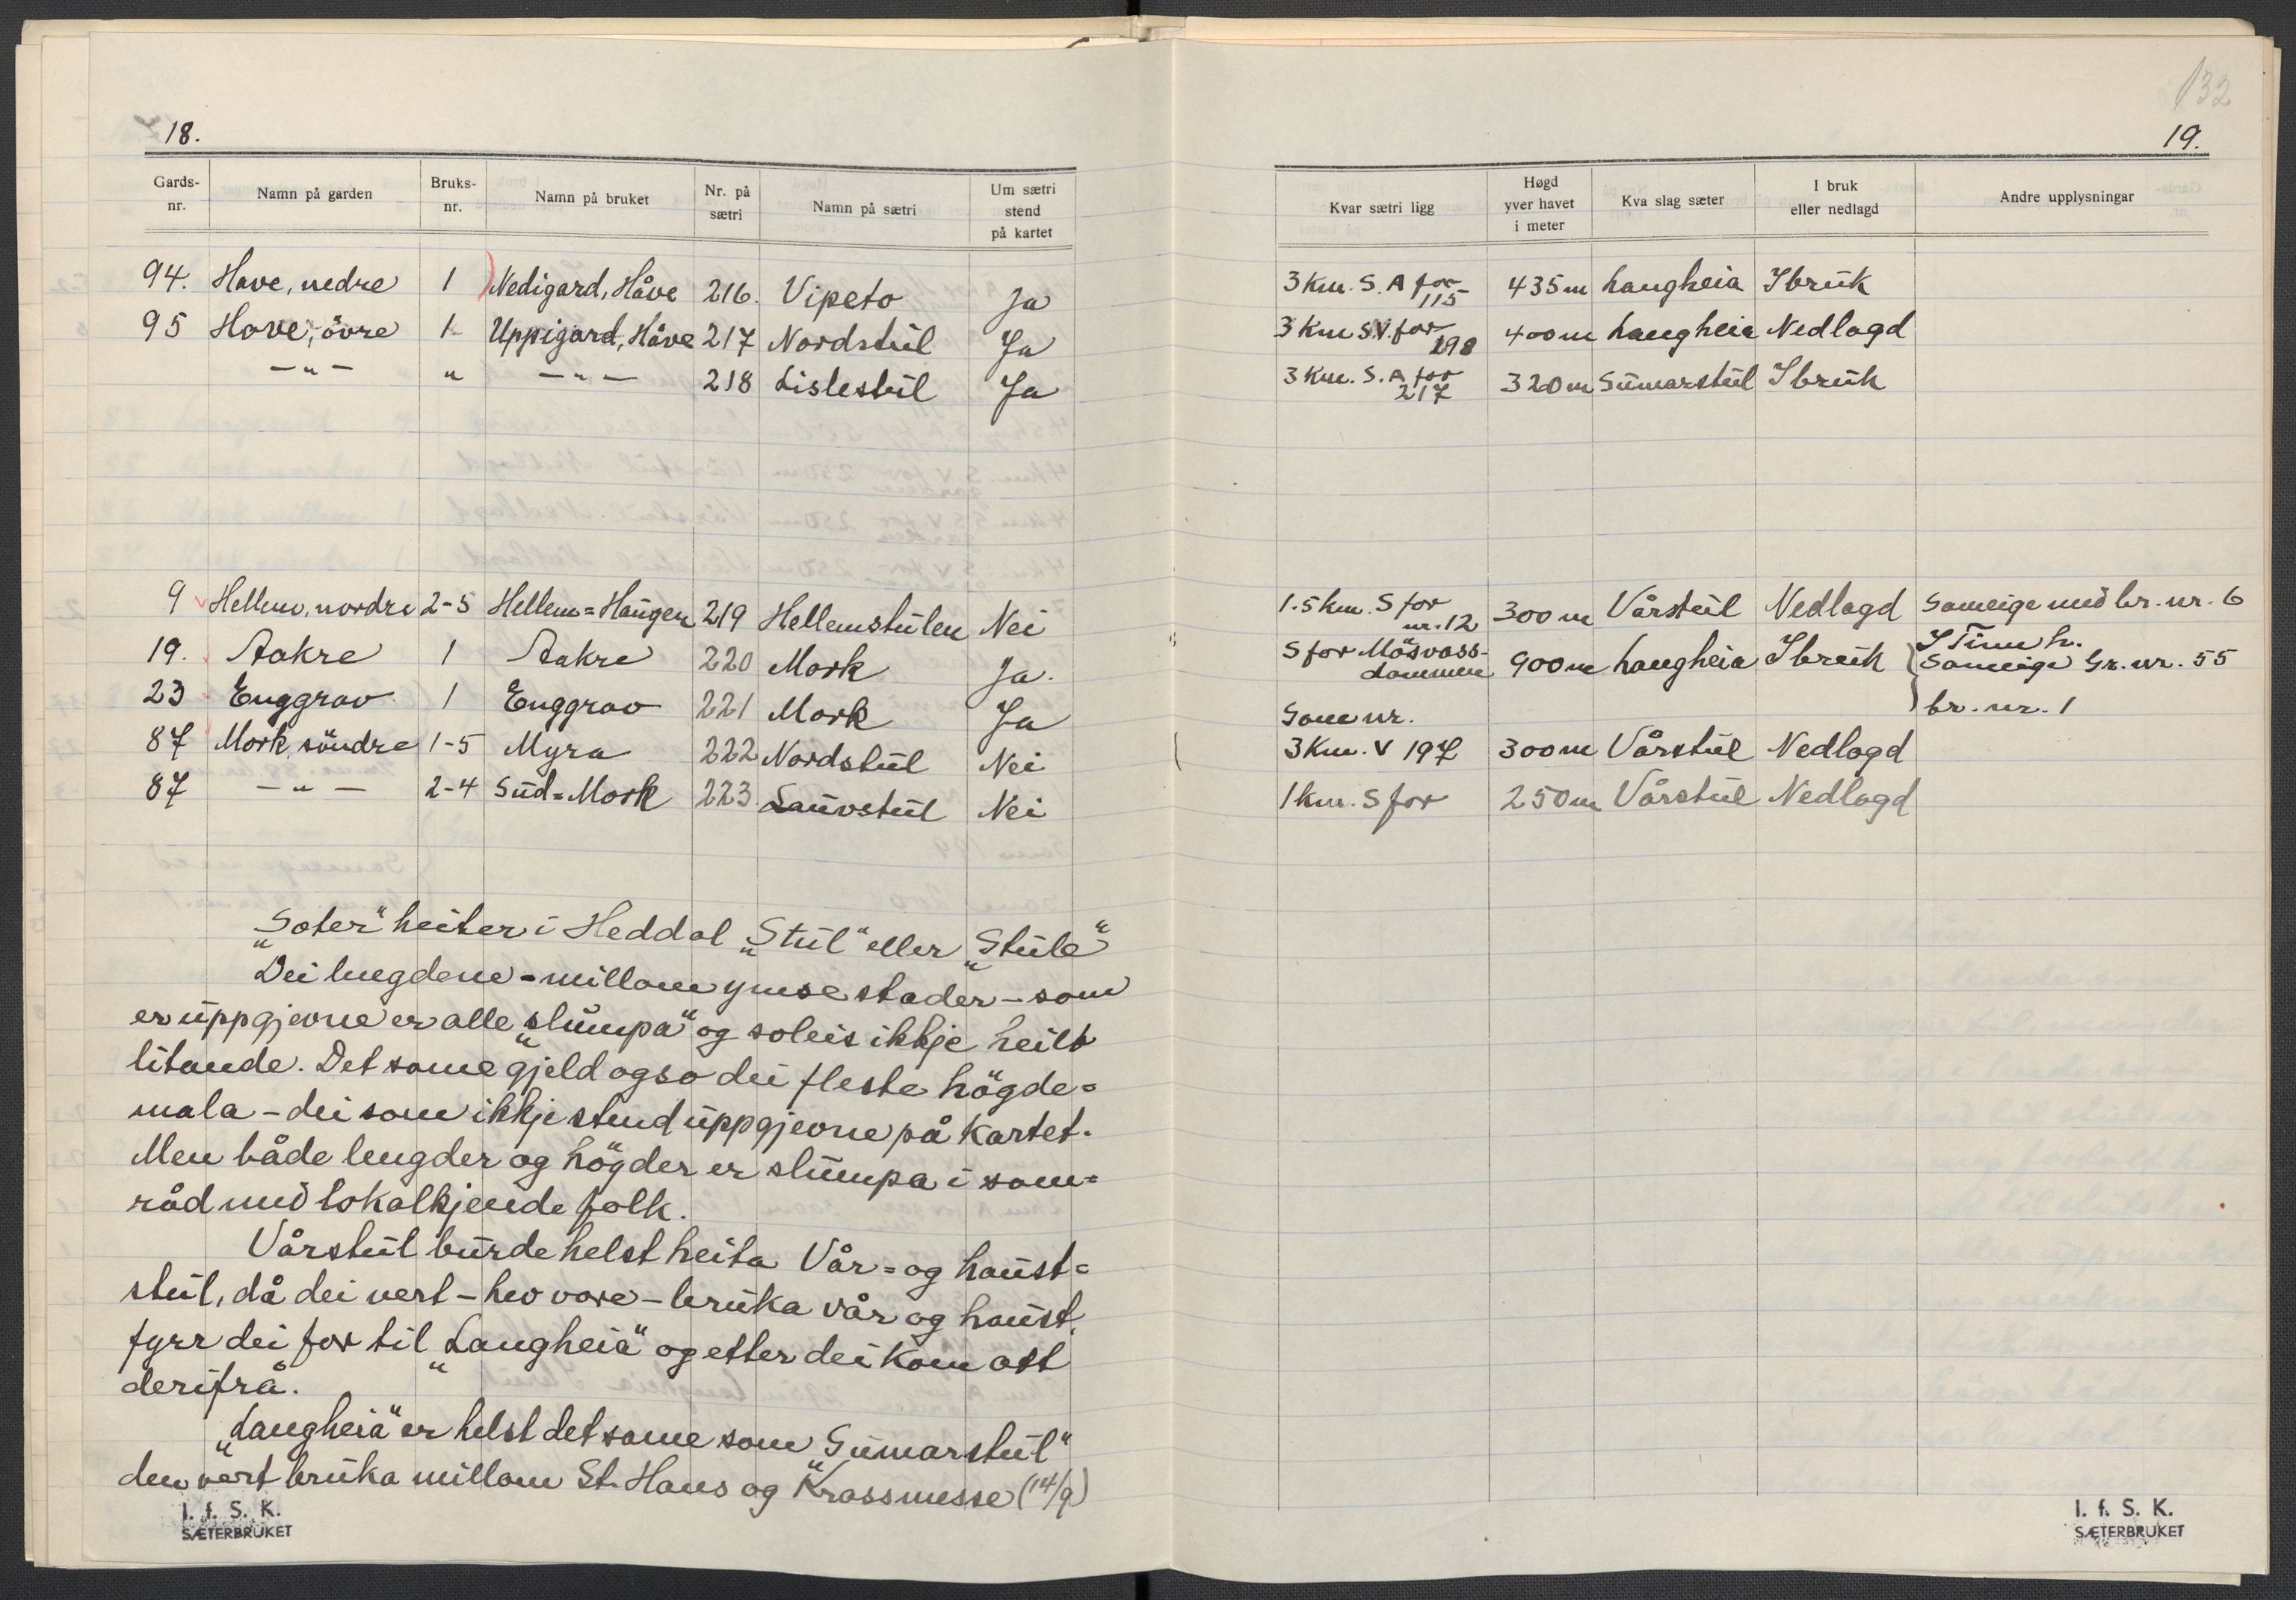 18.
Gards-nr. Namn på garden Bruks-nr. Namn på bruket Nr. på sætri Namn på sætri Um sætri stend på kartet
94. Hove, nedre 1 Nedigard, Håve 216. Vipeto Ja
95 Hove, övre 1 Uppigard, Håve 217 Nordstul Ja
— " — " — " — 218 Lislestul Ja
9 Hellem, nordre 2-5 Hellem=Haugen 219 Hellemstulen Nei
19. Aakre 1 Aakre 220 Mork Ja.
23 Enggrav 1 Enggrav 221 Mork Ja
87 Mork, söndre 1-5 Myra 222 Nordstul Nei
87 — " — 2-4 Sud=Mork 223 Lauvstul Nei
„Soter" heiter i Heddal „Stul" eller „Stule"
Dei lengdene - millom ymse stader - som
er uppgjevne er alle „slumpa" og soleis ikkje heilt
litande. Det same gjeld ogso dei fleste högde=
mala - dei som ikkje stend uppgjevne på kartet.
Men både lengder og högder er slumpa i sam=
råd med lokalkjende folk.
Vårstul burde helst heita Vår= og haust=
stul, då dei vert - hev vore - bruka vår og haust,
fyrr dei for til „Langheia" og etter dei kom att
derifrå.
„Langheia" er helst det same som „Sumarstul"
den vert bruka millom St. Hans og Krossmesse (14/9)
I. f. S. K.
SÆTERBRUKET
132
19.
Kvar sætri ligg Høgd yver havet i meter Kva slag sæter I bruk eller nedlagd Andre upplysningar
3 km. S. A for 115 435 m Langheia I bruk
3 km S.V. for 198 400 m Langheia Nedlagd
3 km. S. A for 217 320 m Sumarstul I bruk
1.5 km. S for nr. 12 300 m Vårstul Nedlagd Sameige med br. nr. 6
S for Mösvass-dammen 900 m Langheia I bruk I Tinn h. Sameige Gr. nr. 55
Same nr. br. nr. 1
3 km. V 197 300 m Vårstul Nedlagd
1 km. S for 250 m Vårstul Nedlagd
I. f. S. K.
SÆTERBRUKET